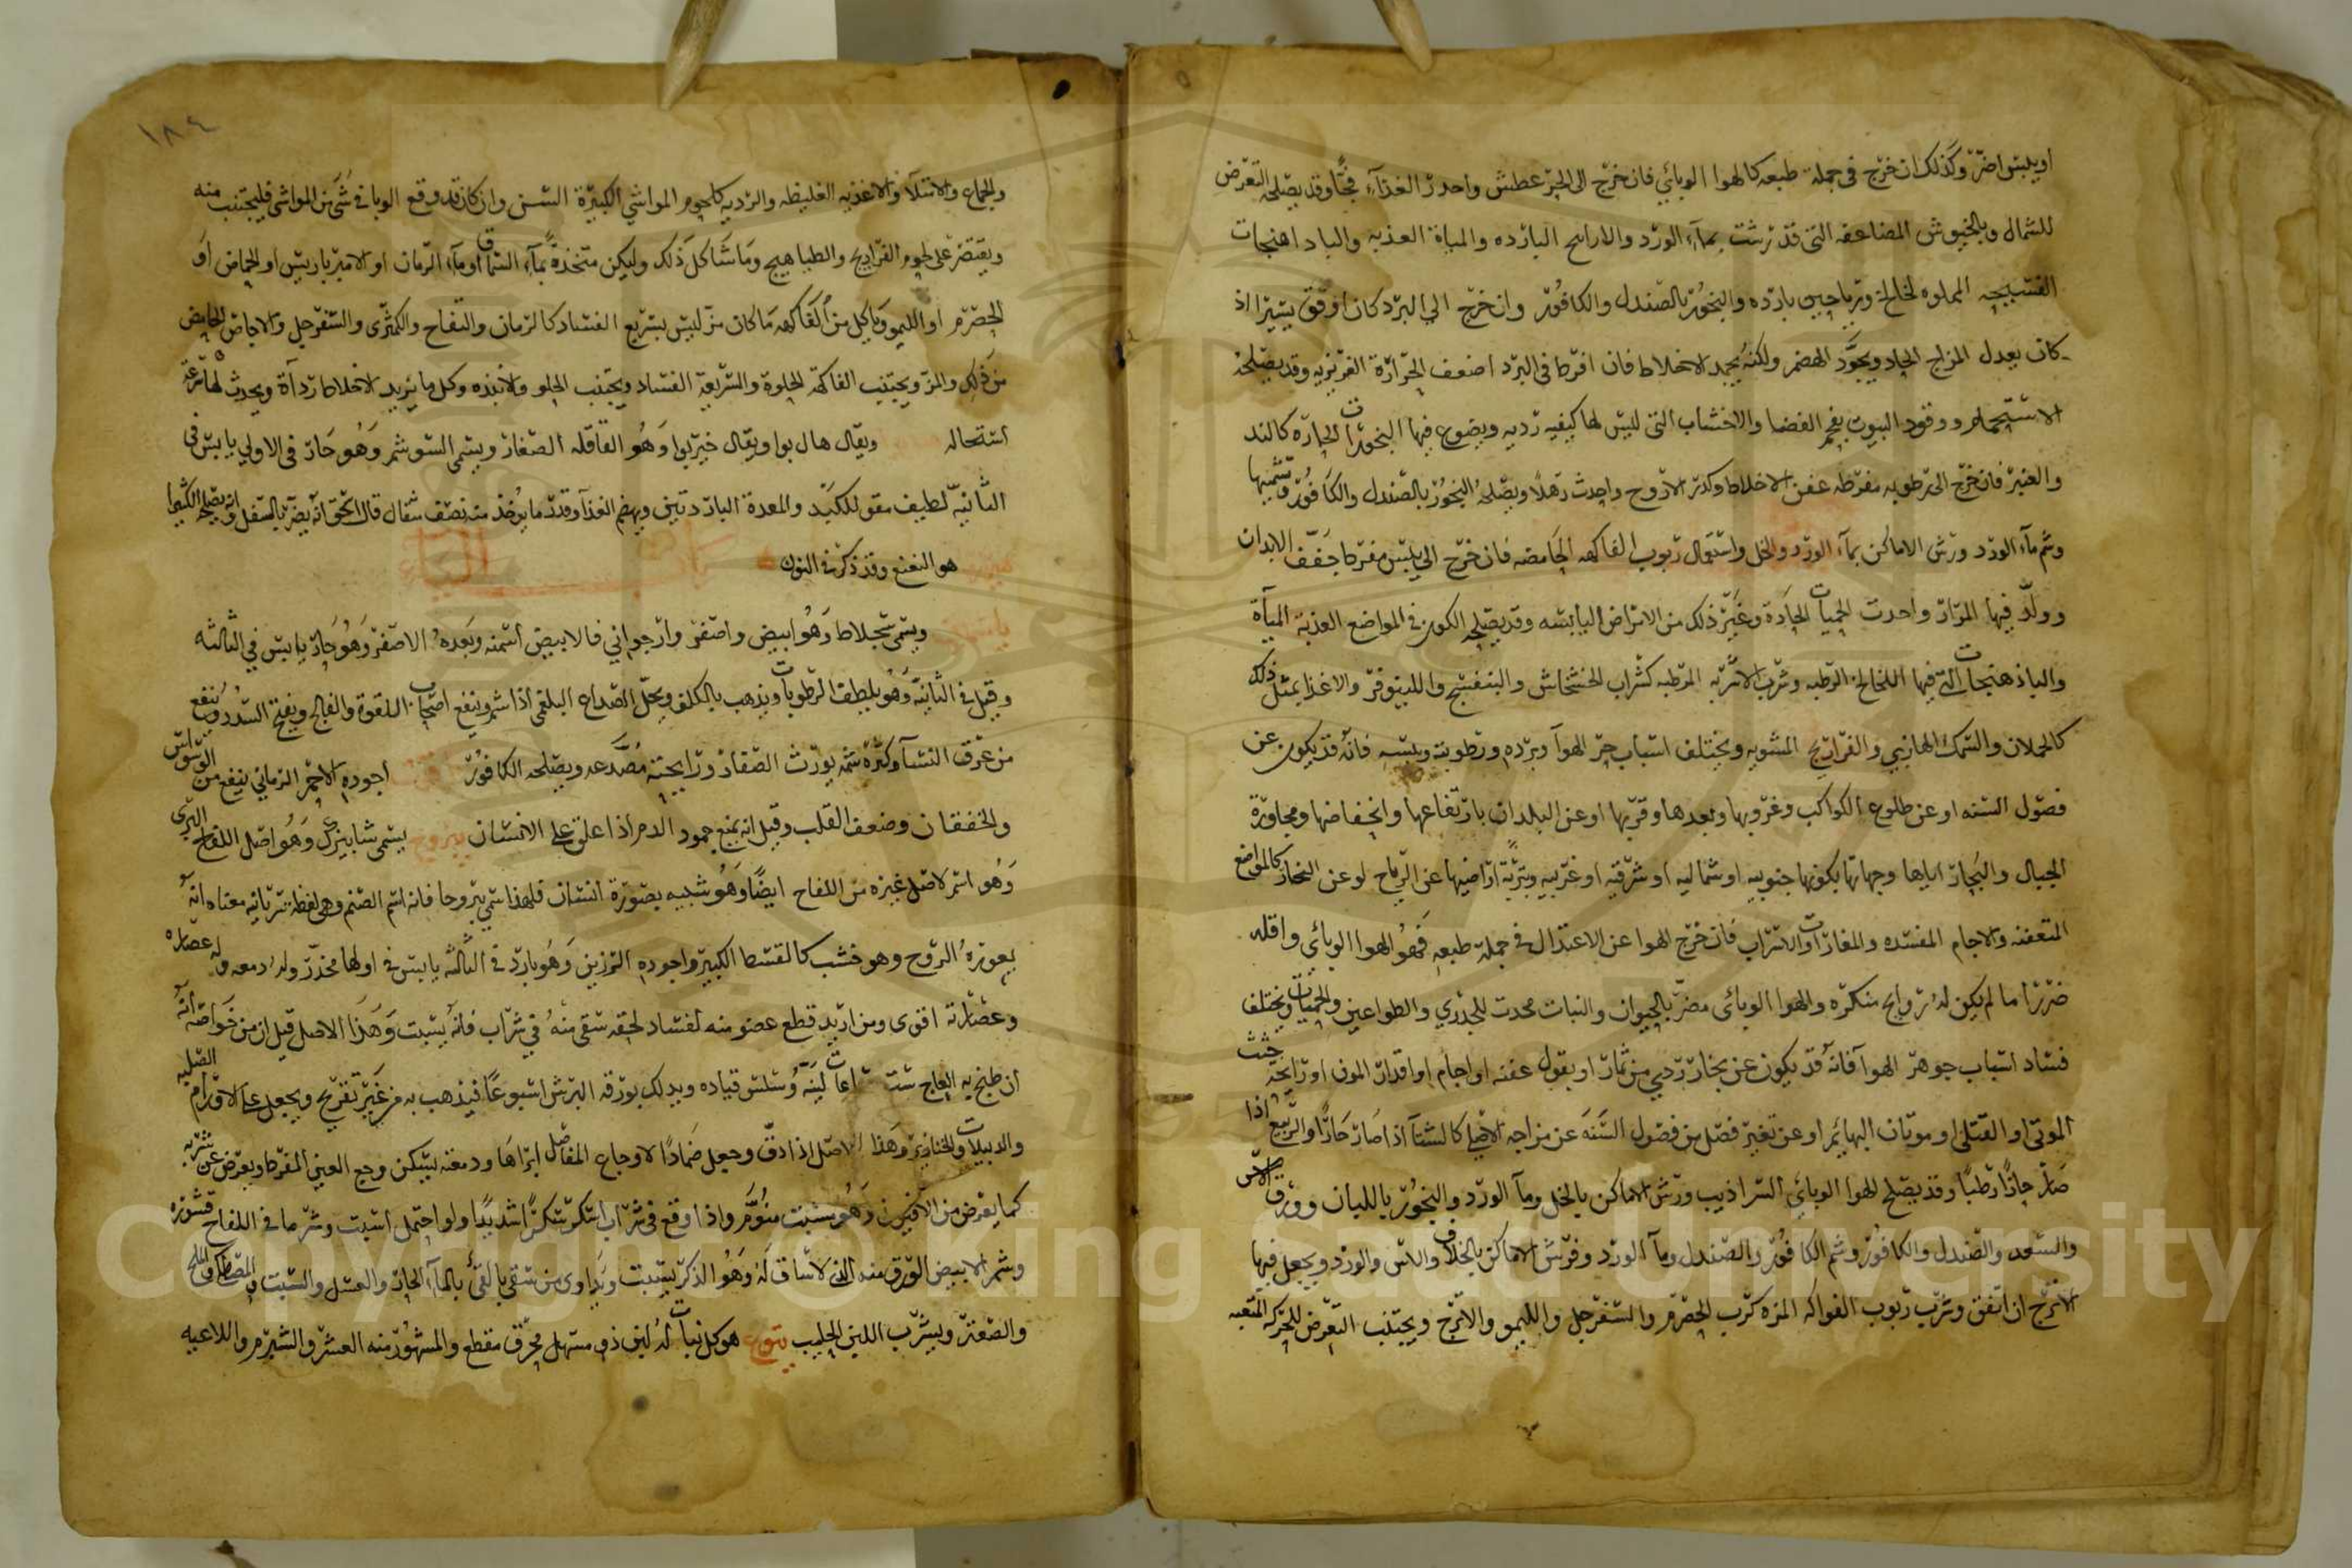 او يلبس اضر وكذلك ان خرج فى جملة طبعه كالهوا الوبائي فان خرج الى الحر عطش واحدر الغذاء فجا وقد يصلحه التعرض
للشمال وبالخيوش المضاعفه التى قد رشت بماء الورد والاراييح البارده والمياه العذبه والباد اهنجات
المملوه لخالخ ورياحين بارده والبخور بالصندل والكافور وان خرج الي البرد كان اوفق يسيرا اذ
كان يعدل المزاج الحاد ويجود الهضم ولكنه يجمد الاخلاط فان افرط فى البرد اضعف الحرارة الغريزيه وقد يصلحه
الاستحمام ووقود البيوت بفحم الغضا والاخشاب التى ليس لها كيفيه رديه ويضوع فيها البخورات الحاره كالند
والعنبر فان خرج الى رطوبه مفرطه عفن الاخلاط وكدر الاروح واحدث رهلا ويصلحه البخور بالصندل والكافور وتشميها
وشم ماء الورد ورش الاماكن بماء الورد والخل واستعمال ربوب الفاكهه الحامضه فان خرج الي يبس مفرط جفف الابدان
وولد فيها المرار واحدث الحميات الحادة وغير ذلك من الامراض اليابسه وقد يصلحه الكون فى المواضع العذبة المياة
والباذهنجات التى فيها اللخالخ الرطبه وشرب الاشربه المرطبه كشراب الخشخاش والبنفسج واللينوفر والاغذا بمثل ذلك
كالحملان والسمك الهازبي والفراريج المشويه ويختلف اسباب حر الهوا وبرده ورطوبته ويبسه فانه قد يكون عن
فصول السنه او عن طلوع الكواكب وغروبها وبعدها وقربها او عن البلدان بارتفاعها وانخفاضها ومجاورة
الجبال والبحار اياها وجهاتها بكونها جنوبيه او شماليه او شرقيه او غربيه وبتربة اراضيها عن الرياح او عن البخار كالمواضع
المتعفنه والاجام المفسده والمغارات والاسراب فان خرج الهوا عن الاعتدال فى جملة طبعه فهو الهوا الوبائي واقله
ضررا ما لم يكن له روايح منكره والهوا الوبائى مضر بالحيوان والنبات محدث للجدري والطواعين والحميات ويختلف
فساد اسباب جوهر الهوا فانه قد يكون عن بخار ردي من ثمار او بقول عفنه او اجام او اقدار المون او رائحة جثث
الموتى او القتلى او موتان البهايم او عن تغير فصل من فصول السنه عن مزاجه الاصلي كالشتا اذا صار حارا والربيع اذا
صار حارا رطبا وقد يصلح الهوا الوبائي السراديب ورش الاماكن بالخل وما الورد والبخور باللبان وورق الاس
والسعد والصندل والكافور وشم الكافور والصندل وما الورد وفرش الاماكن بالخلاف والاس والورد ويجعل فيها
الاترج ان اتفق وشرب ربوب الفواكه المزه كرب الحصرم والسفرجل والليمو والاترج ويجتنب التعرض للحركه المتعبه
١٨٤
والجماع والامتلا والاغذيه الغليظه والرديه كلحوم المواشي الكبيرة السن وان كان قد وقع الوبا فى شى من المواشى فليجتنب منه
ويقتصر على لحوم الفراريج والطياهيج وما شاكل ذلك وليكن متخذة بماء السماق او ماء الرمان او الاميرباريس او الحماض او
الحصرم او الليمو وياكل من الفاكهه ما كان مز ليس بسريع الفساد كالرمان والتفاح والكمثرى والسفرجل والاجاص الحامض
من ذلك والمز ويجتنب الفاكهة الحلوة والسريعة الفساد ويجتنب الحلو والانبذه وكل ما يزيد الاخلاط رداة ويحدث لها سرعة
استحاله ويقال هال بوا ويقال خيربوا وهو القاقله الصغار ويسمى السوشمر وهو حار فى الاولي يابس فى
الثانيه لطيف مقو للكبد والمعدة الباردتين ويهضم الغذا وقدر ما يوخذ منه نصف مثقال قال اسحق انه يضر بالسفل وانه يصلحه الكثيرا
هو النعنع وقد ذكر فى النون باب الياء
ياسمين ويسمى سجلاط وهو ابيض واصفر وارجواني فالابيض اسمنه وبعده الاصفر وهو حار يابس في الثالثه
وقيل فى الثانيه وهو يلطف الرطوبات ويذهب بالكلف ويحل الصداع البلغمى اذا شم وينفع اصحاب اللقوة والفالج ويفتح السدد وينفع
من عرق النسا وكثرة شمه يورث الصفار ورايحته مصدعه ويصلحه الكافور ياقوت اجوده الاحمر الرماني ينفع من الوسواس
والخفقان وضعف القلب وقيل انه يمنع جمود الدم اذا علق على الانسان يبروح يسمى شابيزك وهو اصل اللفاح البري
وهو اسم لاصل غيره من اللفاح ايضا وهو شبيه بصورة انسان فلهذا سمي يبروحا فانه اسم الصنم وهى لفظة سريانيه معناه انه
يعوزه الروح وهو خشب كالقسط الكبير واجوده الرزين وهو بارد فى الثالثه يابس فى اولها مخدر وله دمعه وله عصاره
وعصارته اقوى ومن اريد قطع عضو منه لفساد لحقه سقى منه في شراب فانه يسبت وهذا الاصل قيل ان من خواصه انه
ان طبخ به العاج ست ساعات لينه وسلس قياده ويدلك بورقه البرش اسبوعا فيذهب به من غير تقريح ويجعل على الاورام الصلبه
والدبيلات والخنازير وهذا الاصل اذا دق وجعل ضمادا لاوجاع المفاصل ابراها ودمعته يسكن وجع العين المفرط ويعرض عن شربه
كما يعرض من الافيون وهو يسبت منوم واذا وقع فى شراب اسكر سكرا شديدا واو احتمل اسبت وشر ما فى اللفاح قشوره
وشم الابيض الورق منه الذى لا ساق له وهو الذكر يسبت ويداوى من سقى بالقئ بالماء الحار والعسل والشبت والمصطكى والملح
والصعتر ويشرب اللبن الحليب يتوع هو كل نبات له لبن ذو مسهل محرق مقطع والمشهور منه العشر والشبرم واللاعيه